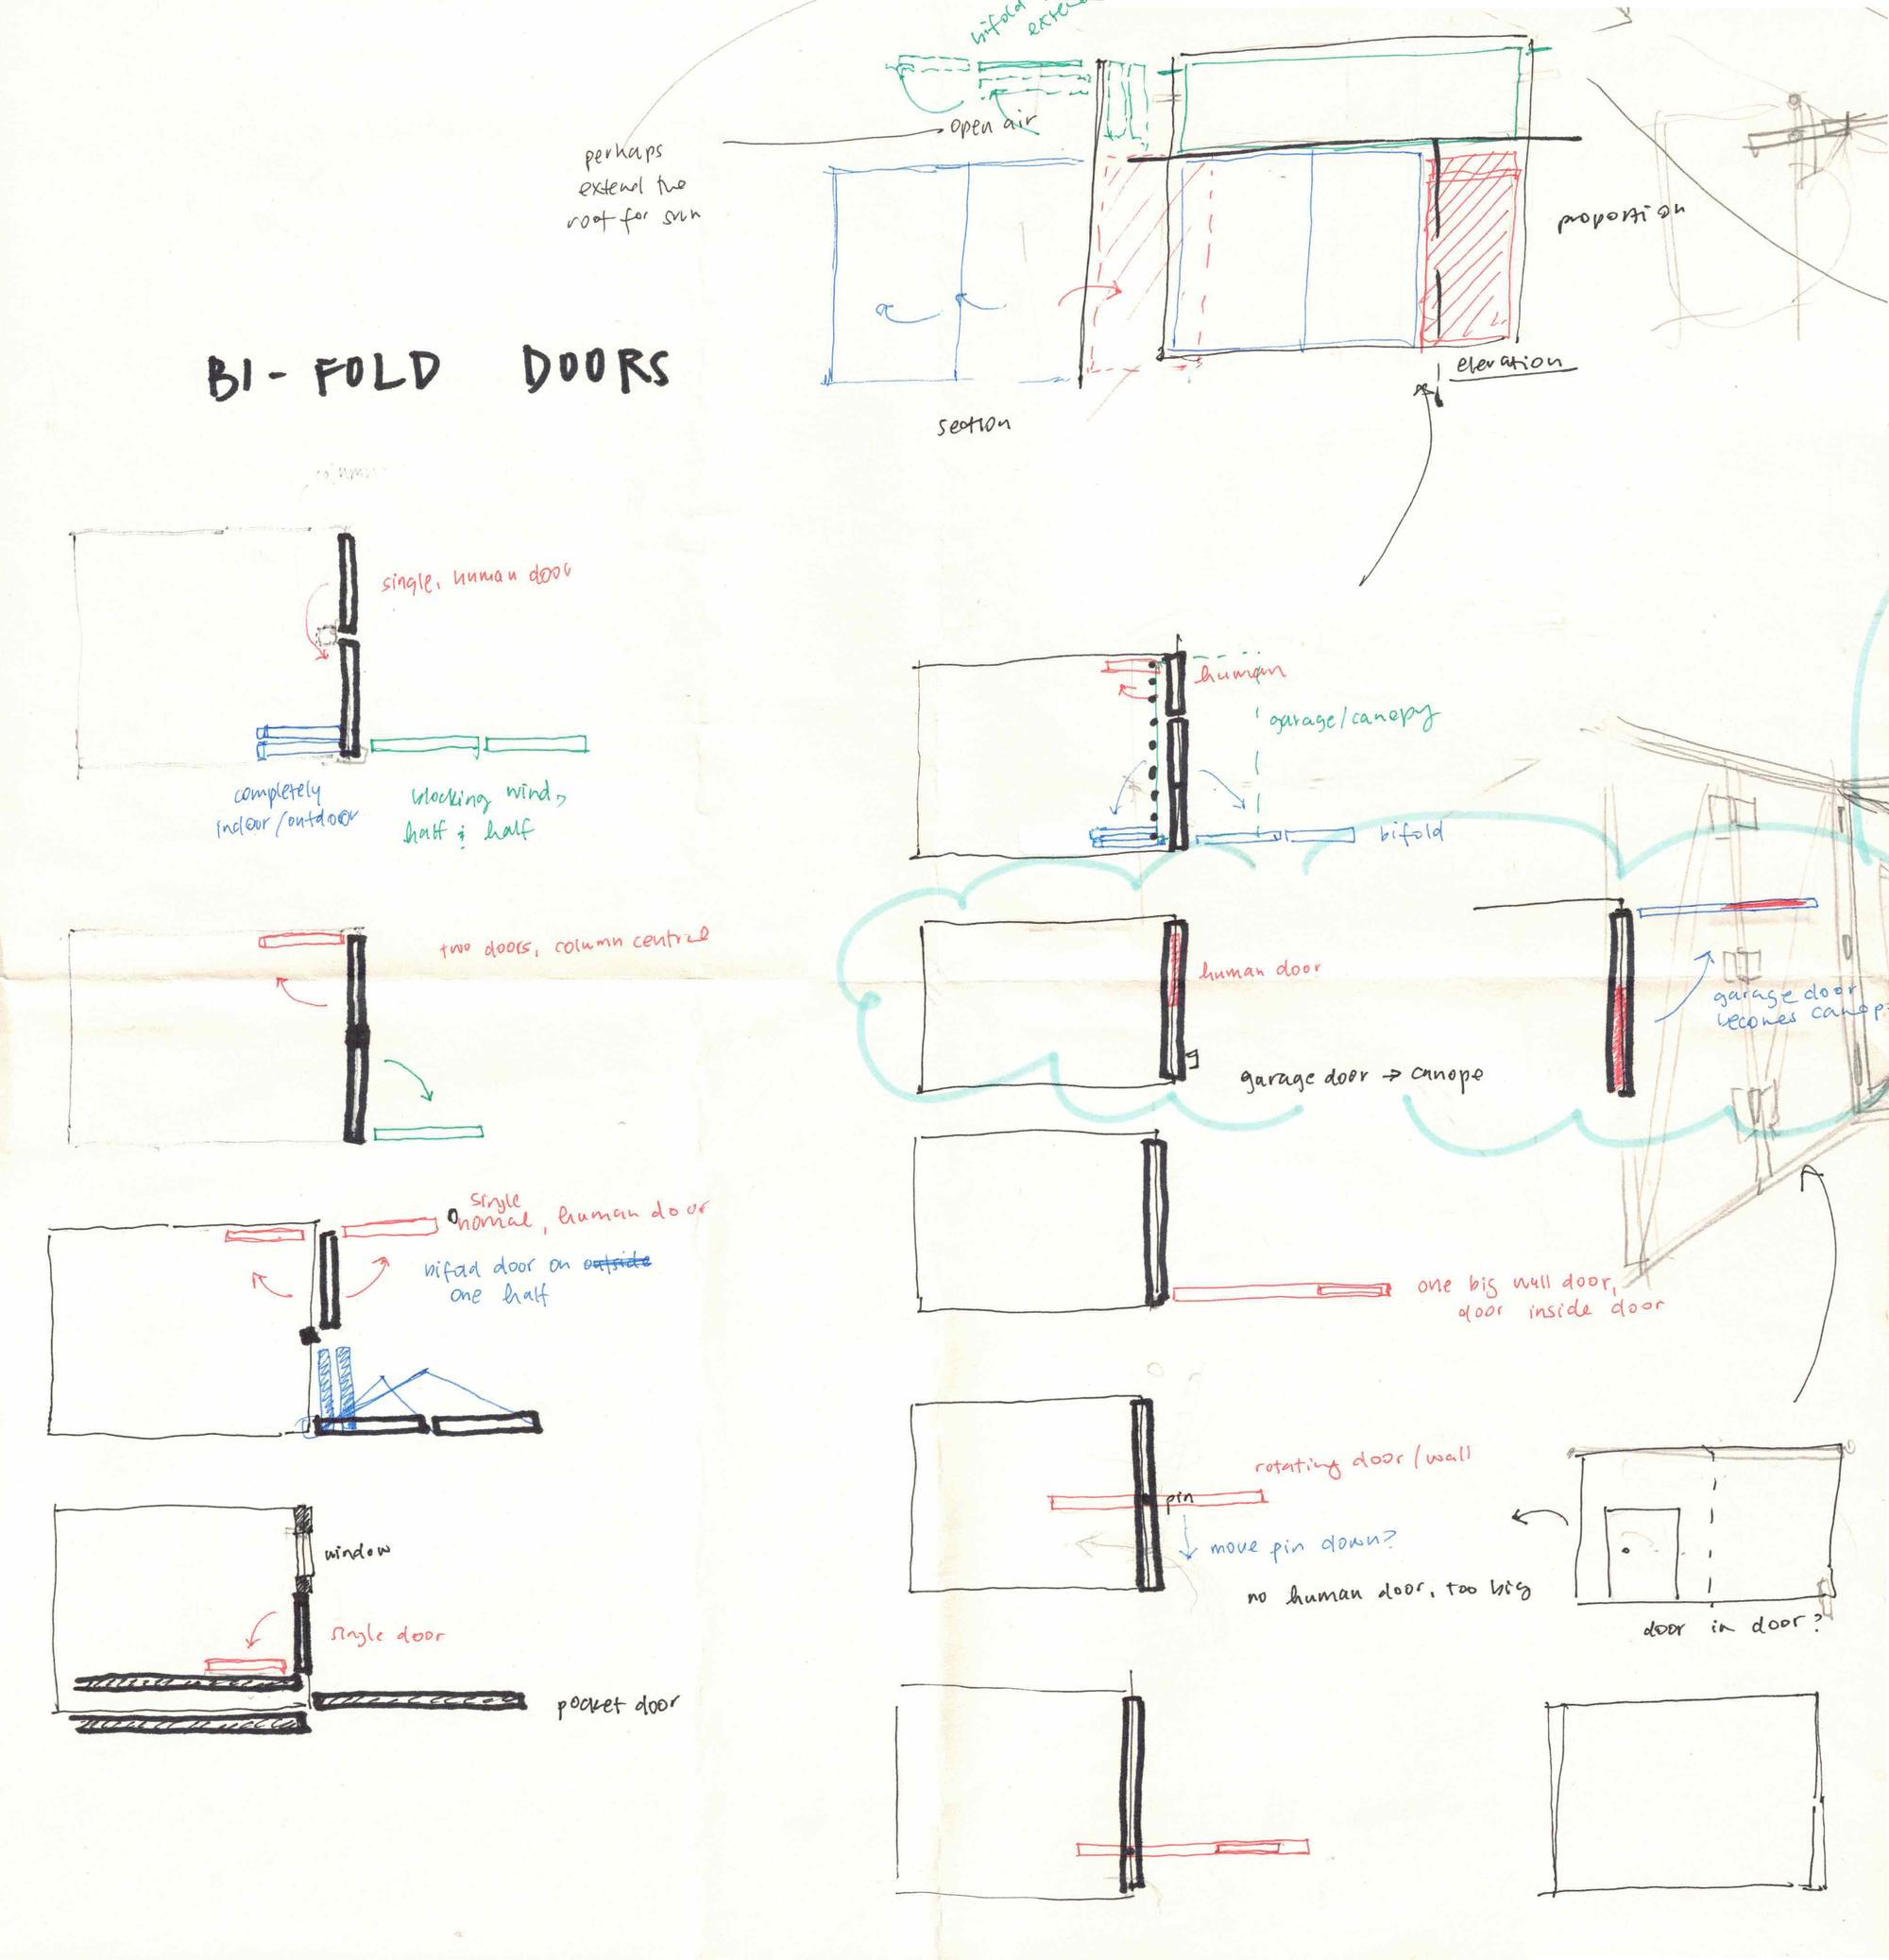 bifold
open air
perhaps
extend the
roof for sun
proportion
elevation
section
BI-FOLD DOORS
single, human door
completely
indoor/outdoor
blocking wind,
half & half
two doors, column central
single
normal, human door
bifold door on outside
one half
window
single door
pocket door
human
garage/canopy
bifold
human door
garage door → canope
garage door
becomes canop
one big wall door,
door inside door
rotating door/wall
pin
move pin down?
no human door, too big
door in door?